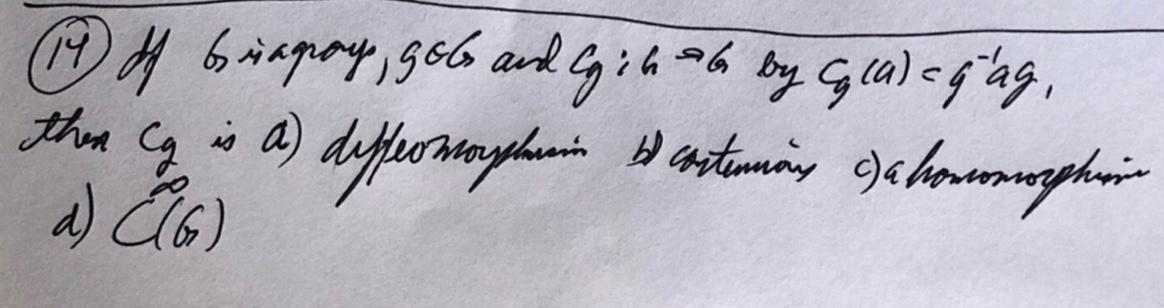 14 If G is a group, g∈G and Cg : G → G by Cg(a) = g⁻¹ag,
then Cg is a) diffeomorphism b) continuous c) a homomorphism
d) C∞(G)